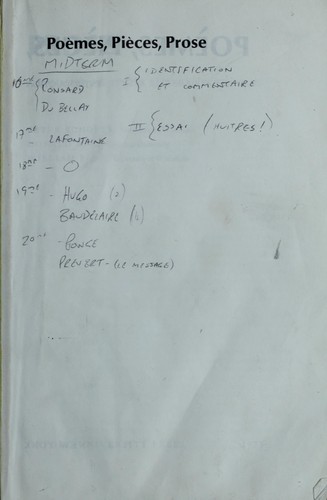 Poèmes, Pièces, Prose
MIDTERM
16ème { RONSARD
DU BELLAY
I { IDENTIFICATION
ET COMMENTAIRE
II { ESSAI (HUITRES!)
17me LAFONTAINE
18me - O
19me - HUGO (2)
BAUDELAIRE (6)
20me - PONGE
PREVERT - (LE MESSAGE)